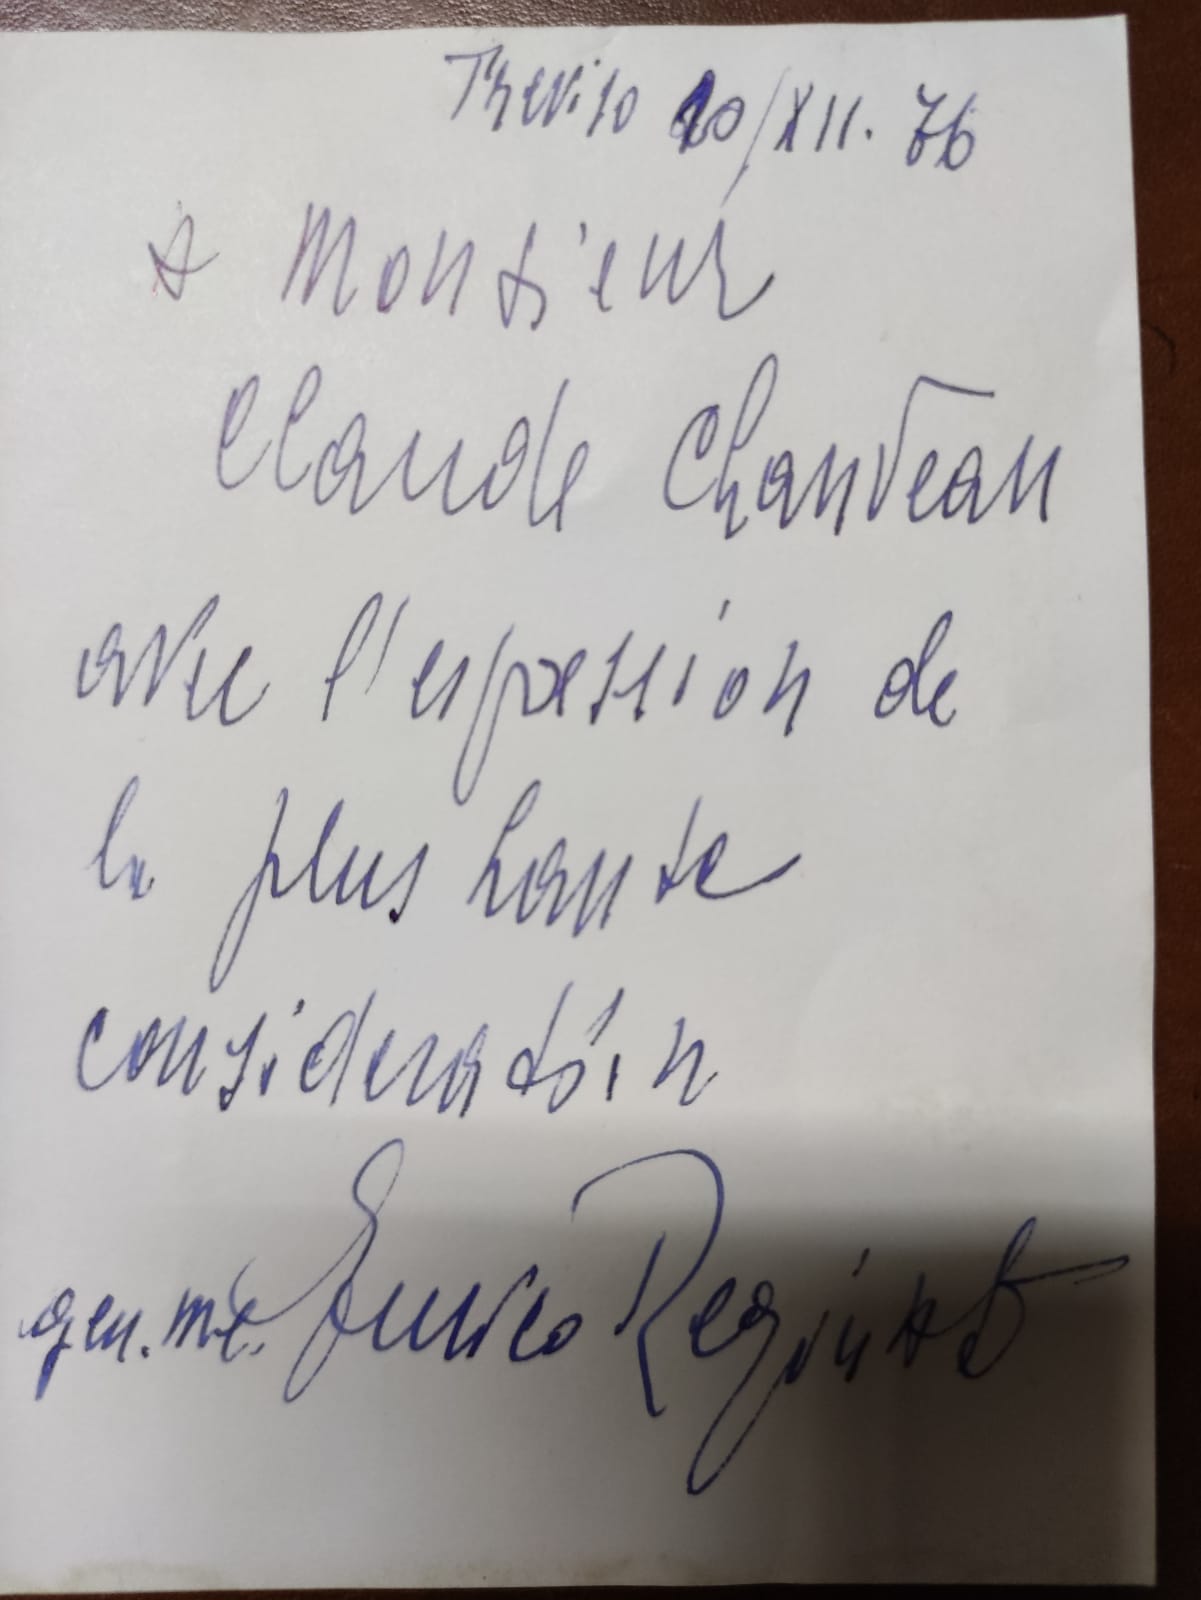 Treviso 20/XII. 76
a Monsieur
Claude Chauveau
avec l'espression de
la plus haute
consideratión
gen. me. Enrico Reginato